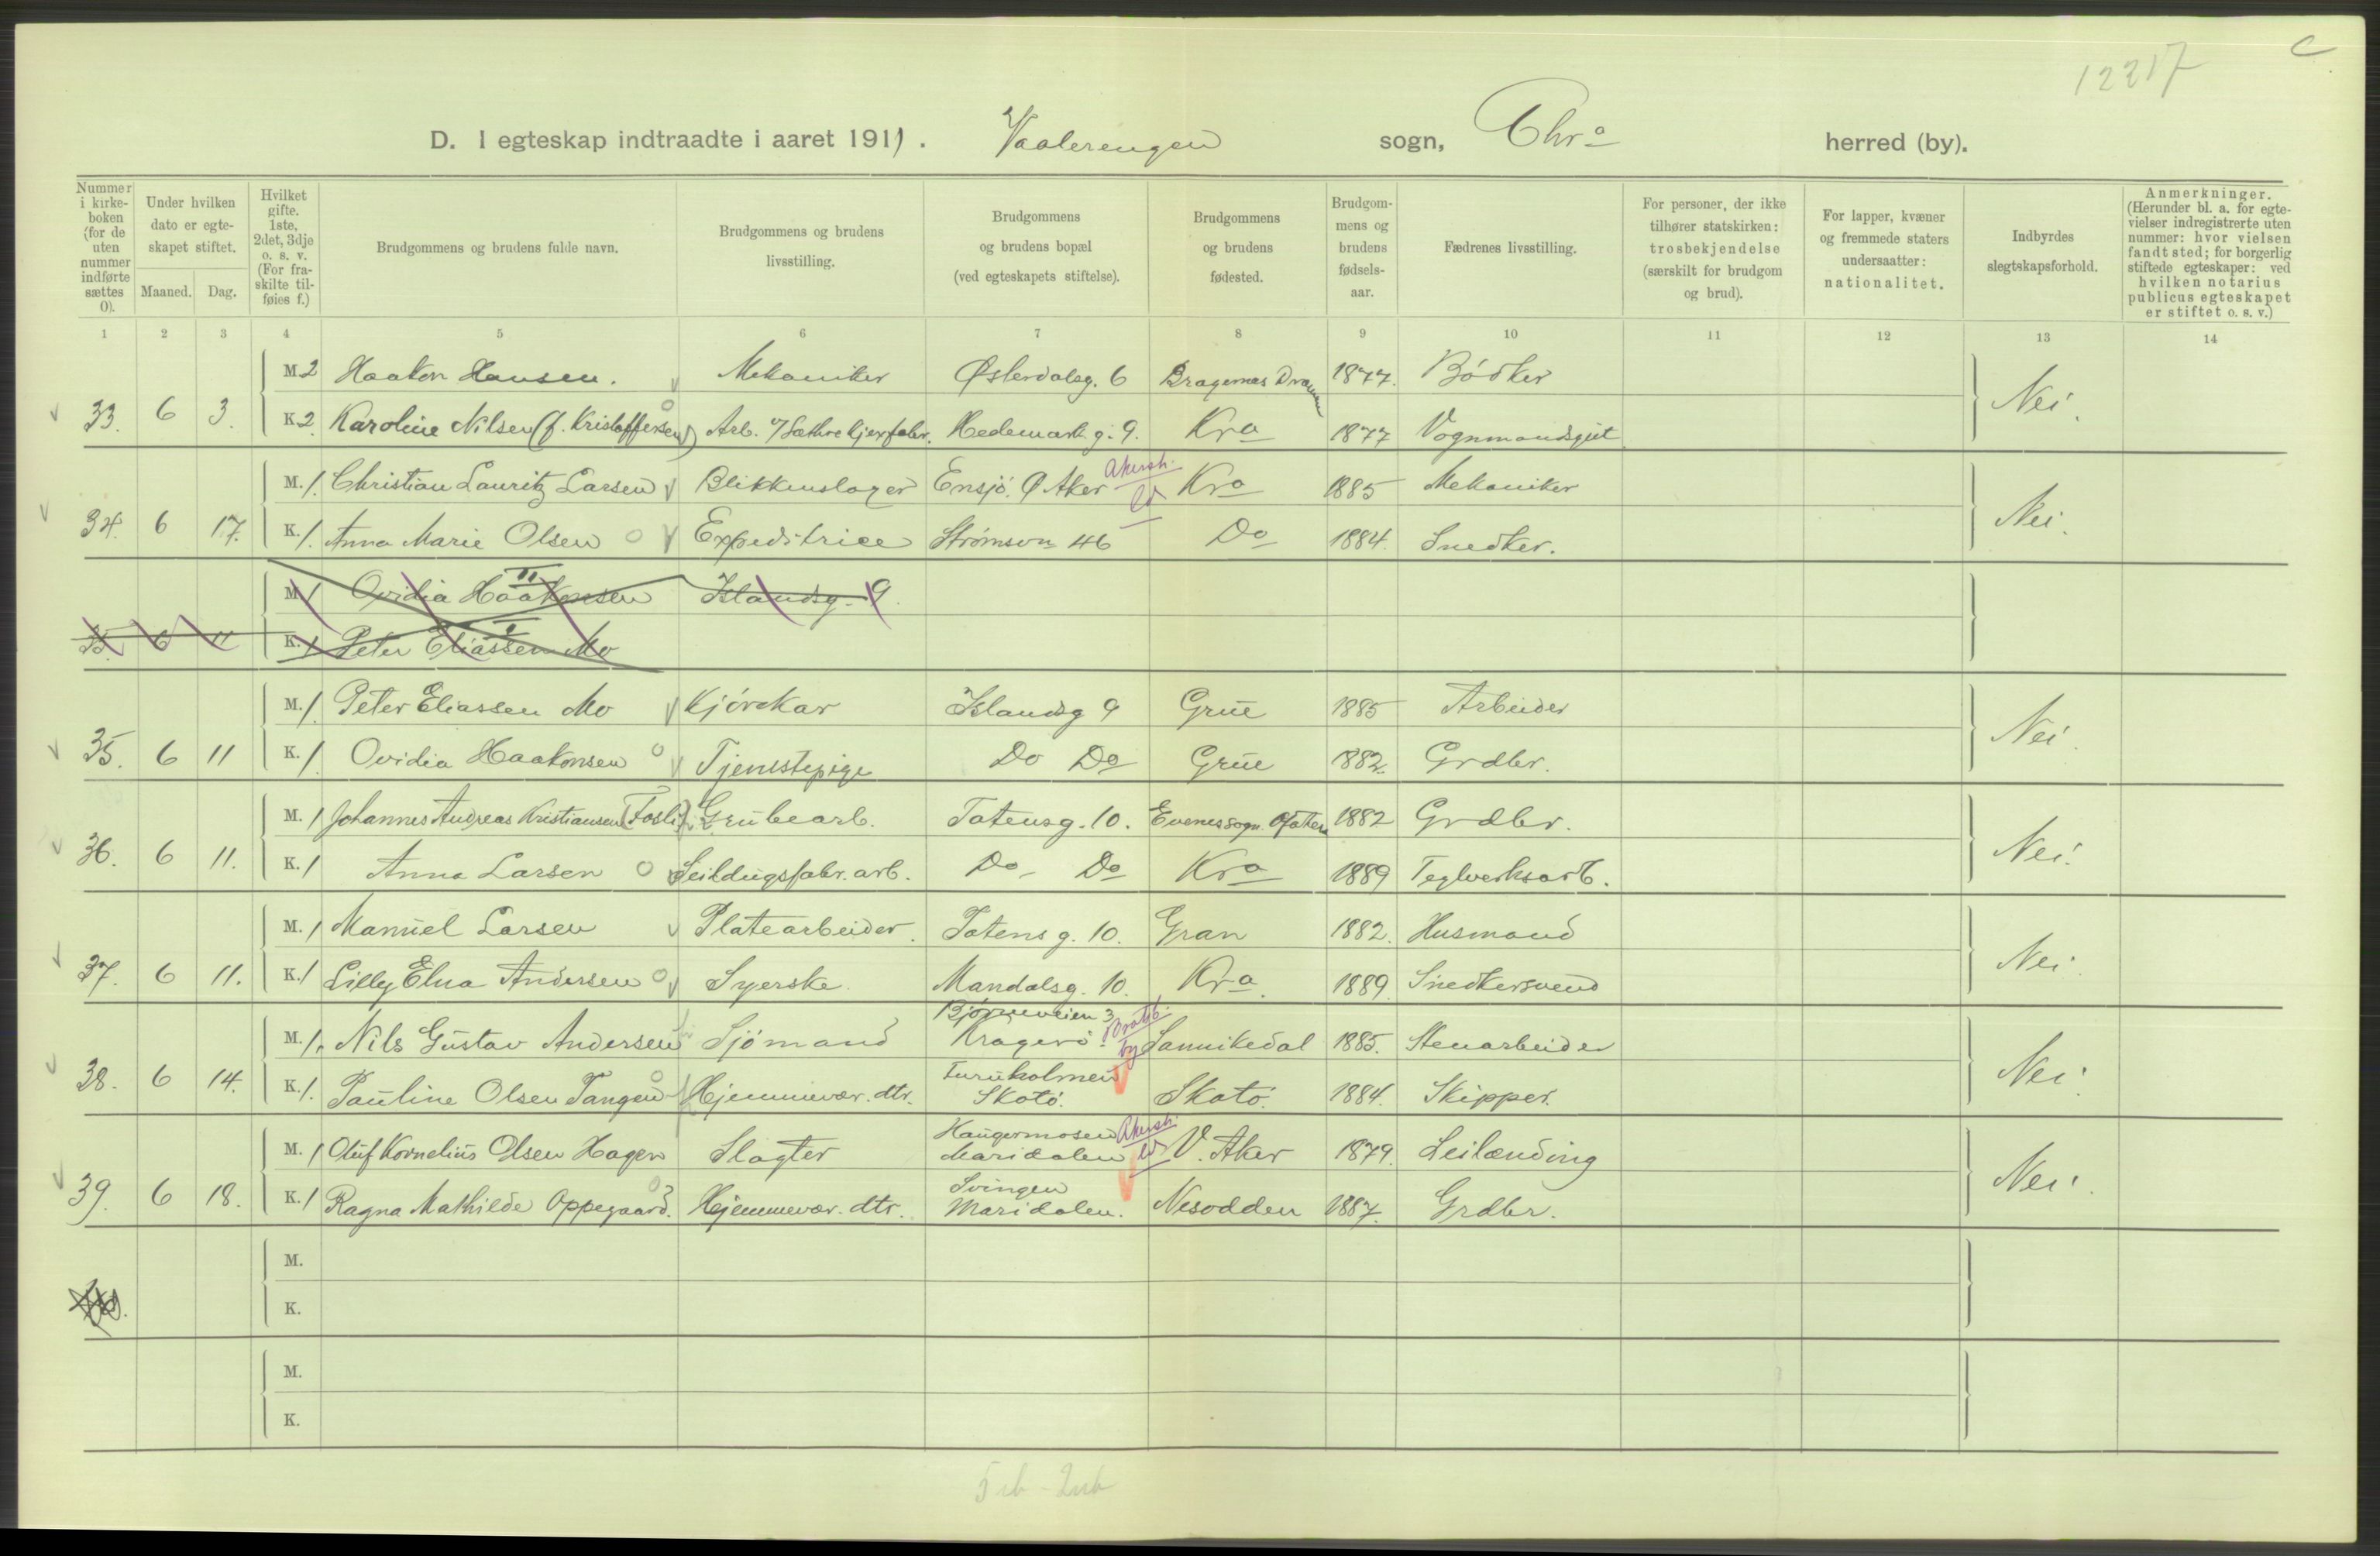 12217
C
D. I egteskap indtraadte i aaret 1911. Vaalerengen sogn, Chr a herred (by).
Nummer i kirkeboken (for de uten nummer indførte sættes 0).
Under hvilken dato er egteskapet stiftet.
Maaned. Dag.
Hvilket gifte. 1ste, 2det, 3dje o. s. v. (For fraskilte tilføies f.)
Brudgommens og brudens fulde navn.
Brudgommens og brudens livsstilling.
Brudgommens og brudens bopæl (ved egteskapets stiftelse).
Brudgommens og brudens fødested.
Brudgommens og brudens fødselsaar.
Fædrenes livsstilling.
For personer, der ikke tilhører statskirken: trosbekjendelse (særskilt for brudgom og brud).
For lapper, kvæner og fremmede staters undersaatter: nationalitet.
Indbyrdes slegtskapsforhold.
Anmerkninger. (Herunder bl. a. for egtevielser indregistrerte uten nummer: hvor vielsen fandt sted; for borgerlig stiftede egteskaper: ved hvilken notarius publicus egteskapet er stiftet o. s. v.)
1 2 3 4 5 6 7 8 9 10 11 12 13 14
M. 2 Haakon Hansen. Mekaniker Østerdalsg. 6 Bragernes Drammen 1877. Bödker
33. 6 3. K. 2 Karoline Nilsen (f. Kristoffersen) Arb. v/ Sæthre kjexfabr. Hedemark g. 9. Kra 1877 Vognmandsgut Nei.
M. 1. Christian Lauritz Larsen Blikkenslager Ensjö. Ø Aker Akersh. ld Kra 1885 Mekaniker
34. 6 17. K. 1. Anna Marie Olsen Expeditrice Strømsvn 46 Do 1884. Snedker. Nei.
M. 1 Ovidia Haakonsen II Islandsg. 9.
35. 6 11 K. 1 Peter Eliassen Mo I
M. 1. Peter Eliassen Mo Kjörekar Islandsg 9 Grue 1885 Arbeider
35. 6 11 K. 1. Ovidia Haakonsen Tjenestepige Do Do Grue 1882. Grdbr. Nei.
M. 1 Johannes Andreas Kristiansen (Fosli). Grubearb. Totensg. 10. Evenes sogn. Ofoten 1882 Grdbr.
36. 6 11. K. 1 Anna Larsen Seildugsfabr. arb. Do Do Kra 1889 Teglverksarb. Nei.
M. 1 Manuel Larsen Platearbeider. Totens g. 10. Gran 1882. Husmand
37. 6 11. K. 1 Lilly Elna Andersen Syerske. Mandalsg. 10. Kra. 1889. Snedkersvend Nei.
M. 1. Nils Gustav Andersen Sjömand Bjørneveien 3 Kragerö. Bratsb. by Sannikedal 1885. Stenarbeider
38. 6 14. K. 1. Pauline Olsen Tangen Hjemmevær. dtr. Furuholmen Skatö. Skatö. 1884. Skipper. Nei.
M. 1 Oluf Kornelius Olsen Hagen Slagter Haugermosen Maridalen Akersh. ld V. Aker 1879. Leilænding
39. 6 18. K. 1 Ragna Mathilde Oppegaard. Hjemmevær. dtr. Svingen Maridalen. Nesodden 1887. Grdbr. Nei.
M.
K.
M.
K.